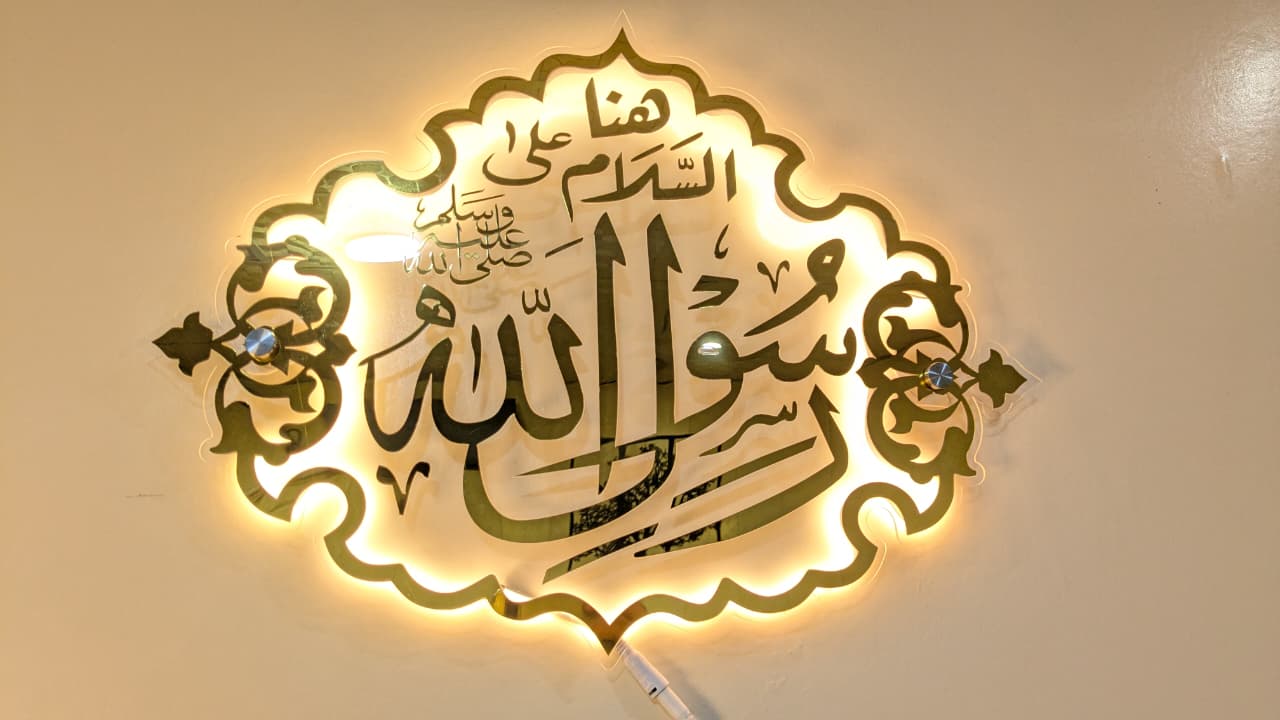 هنا
السَّلَام على
رسُوْل اللّه
صلى الله
عليه
وسَلم